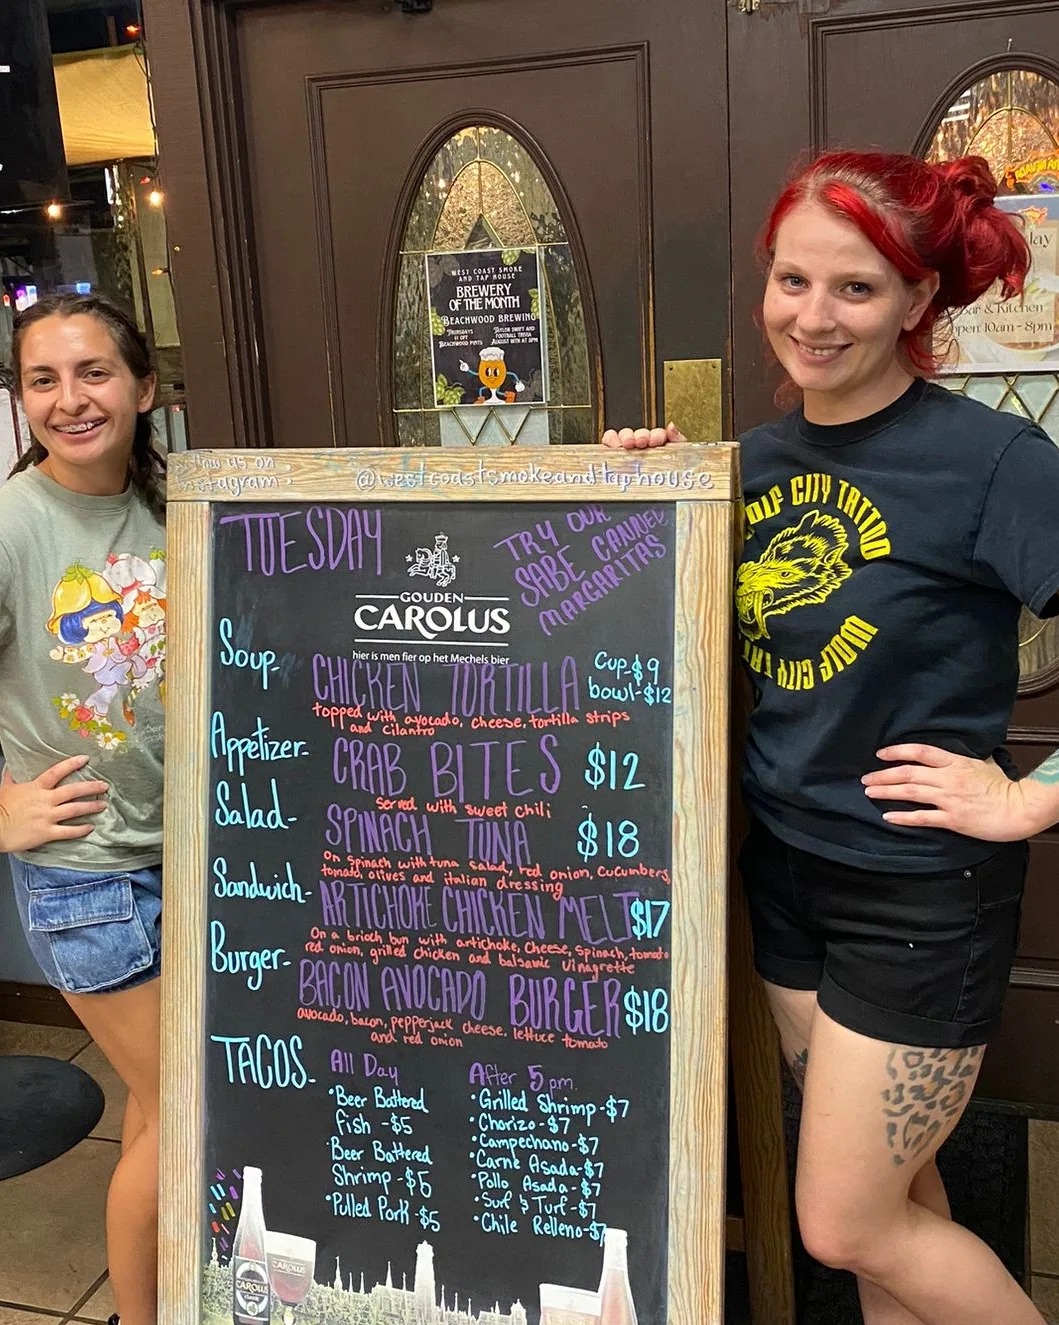 WEST COAST SMOKE
AND TAP HOUSE
BREWERY
OF THE MONTH
BEACHWOOD BREWING
THURSDAYS
$1 OFF
BEACHWOOD PINTS
TAYLOR SWIFT AND
FOOTBALL TRIVIA
AUGUST 18TH AT 5PM
Bar & Kitchen
open: 10am - 8pm
Follow us on
instagram:
@westcoastsmokeandtaphouse
TUESDAY
TRY OUR
SABE CANNED
MARGARITAS
GOUDEN
CAROLUS
hier is men fier op het Mechels bier
Soup-
CHICKEN TORTILLA
Cup-$9
bowl-$12
topped with avocado, cheese, tortilla strips
and cilantro
Appetizer-
CRAB BITES $12
served with sweet chili
Salad-
SPINACH TUNA $18
on spinach with tuna salad, red onion, cucumbers,
tomato, olives and italian dressing
Sandwich-
ARTICHOKE CHICKEN MELT $17
On a brioch bun with artichoke, cheese, spinach, tomato
red onion, grilled chicken and balsamic vinagrette
Burger-
BACON AVOCADO BURGER $18
avocado, bacon, pepperjack cheese, lettuce tomato
and red onion
TACOS-
All Day
•Beer Battered
Fish -$5
•Beer Battered
Shrimp -$5
•Pulled Pork -$5
After 5pm.
•Grilled Shrimp-$7
•Chorizo-$7
•Campechano-$7
•Carne Asada-$7
•Pollo Asada-$7
•Surf & Turf-$7
•Chile Relleno-$7
CAROLUS
CAROLUS
WOLF CITY TATTOO
WOLF CITY TATTOO